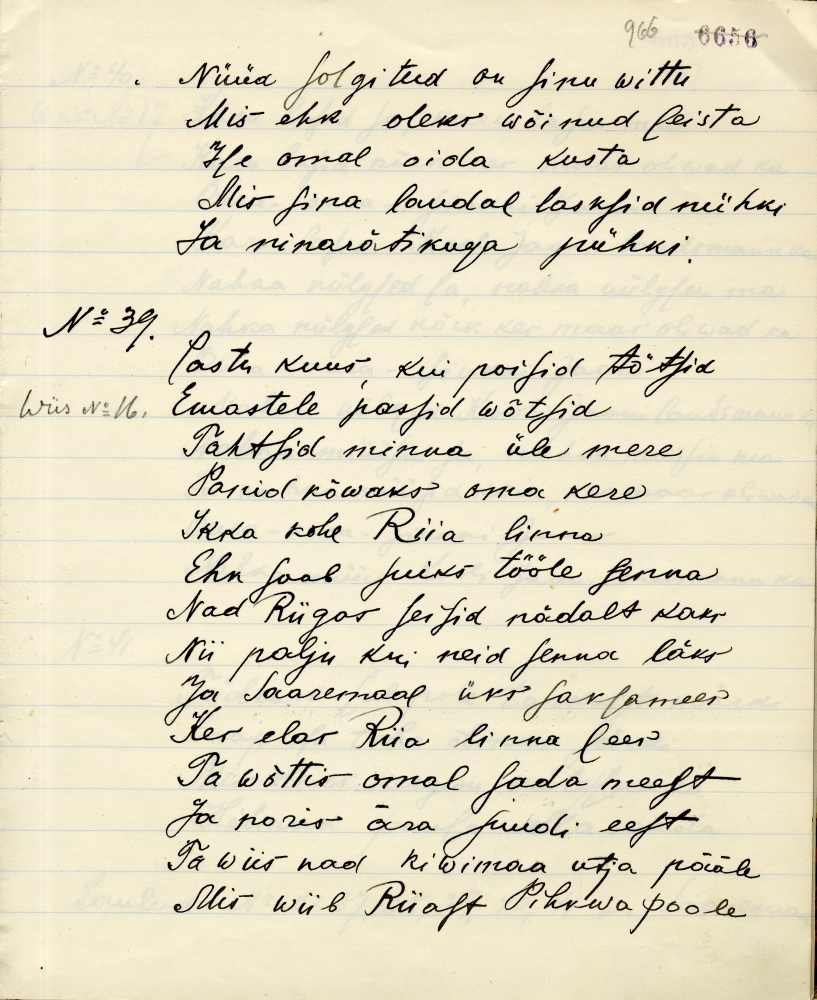 966 6656
Nüüd solgitud on sinu wittu
Mis ehk oleks wõinud seista
Ise omal oida kusta
Mis sina laudal lasksid nühki
Ja ninarätikuga pühki.
№ 39.
Lastu kuus, kui poisid tötsid
Wiis № 16. Emastele passid wõtsid
Tahtsid minna üle mere
Panid kõwaks oma kere
Ikka kohe Riia linna
Ehk saab suiks tööle senna
Nad Riigas seisid nädalt kaks
Nii palju kui neid senna läks
Ja Saaremaal üks saksamees
Kes elas Riia linna sees
Ta wõttis omal sada meest
Ja noris ära suudi eest
Ta wiis nad kiwimaa utja pääle
Mis wiib Riiast Pihkwa poole